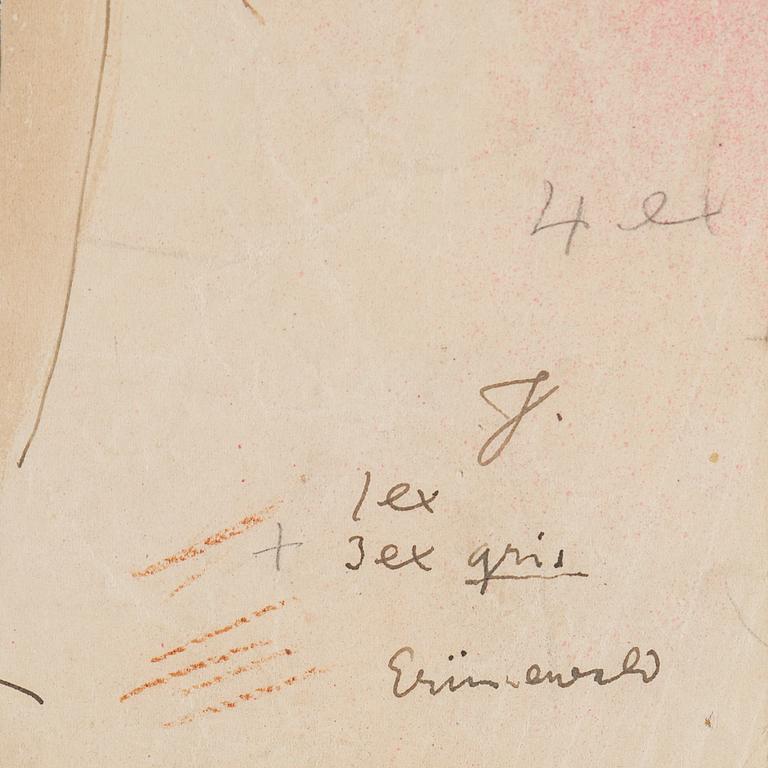 4 ex
J.
1 ex
+ 3 ex gris
Grünewald